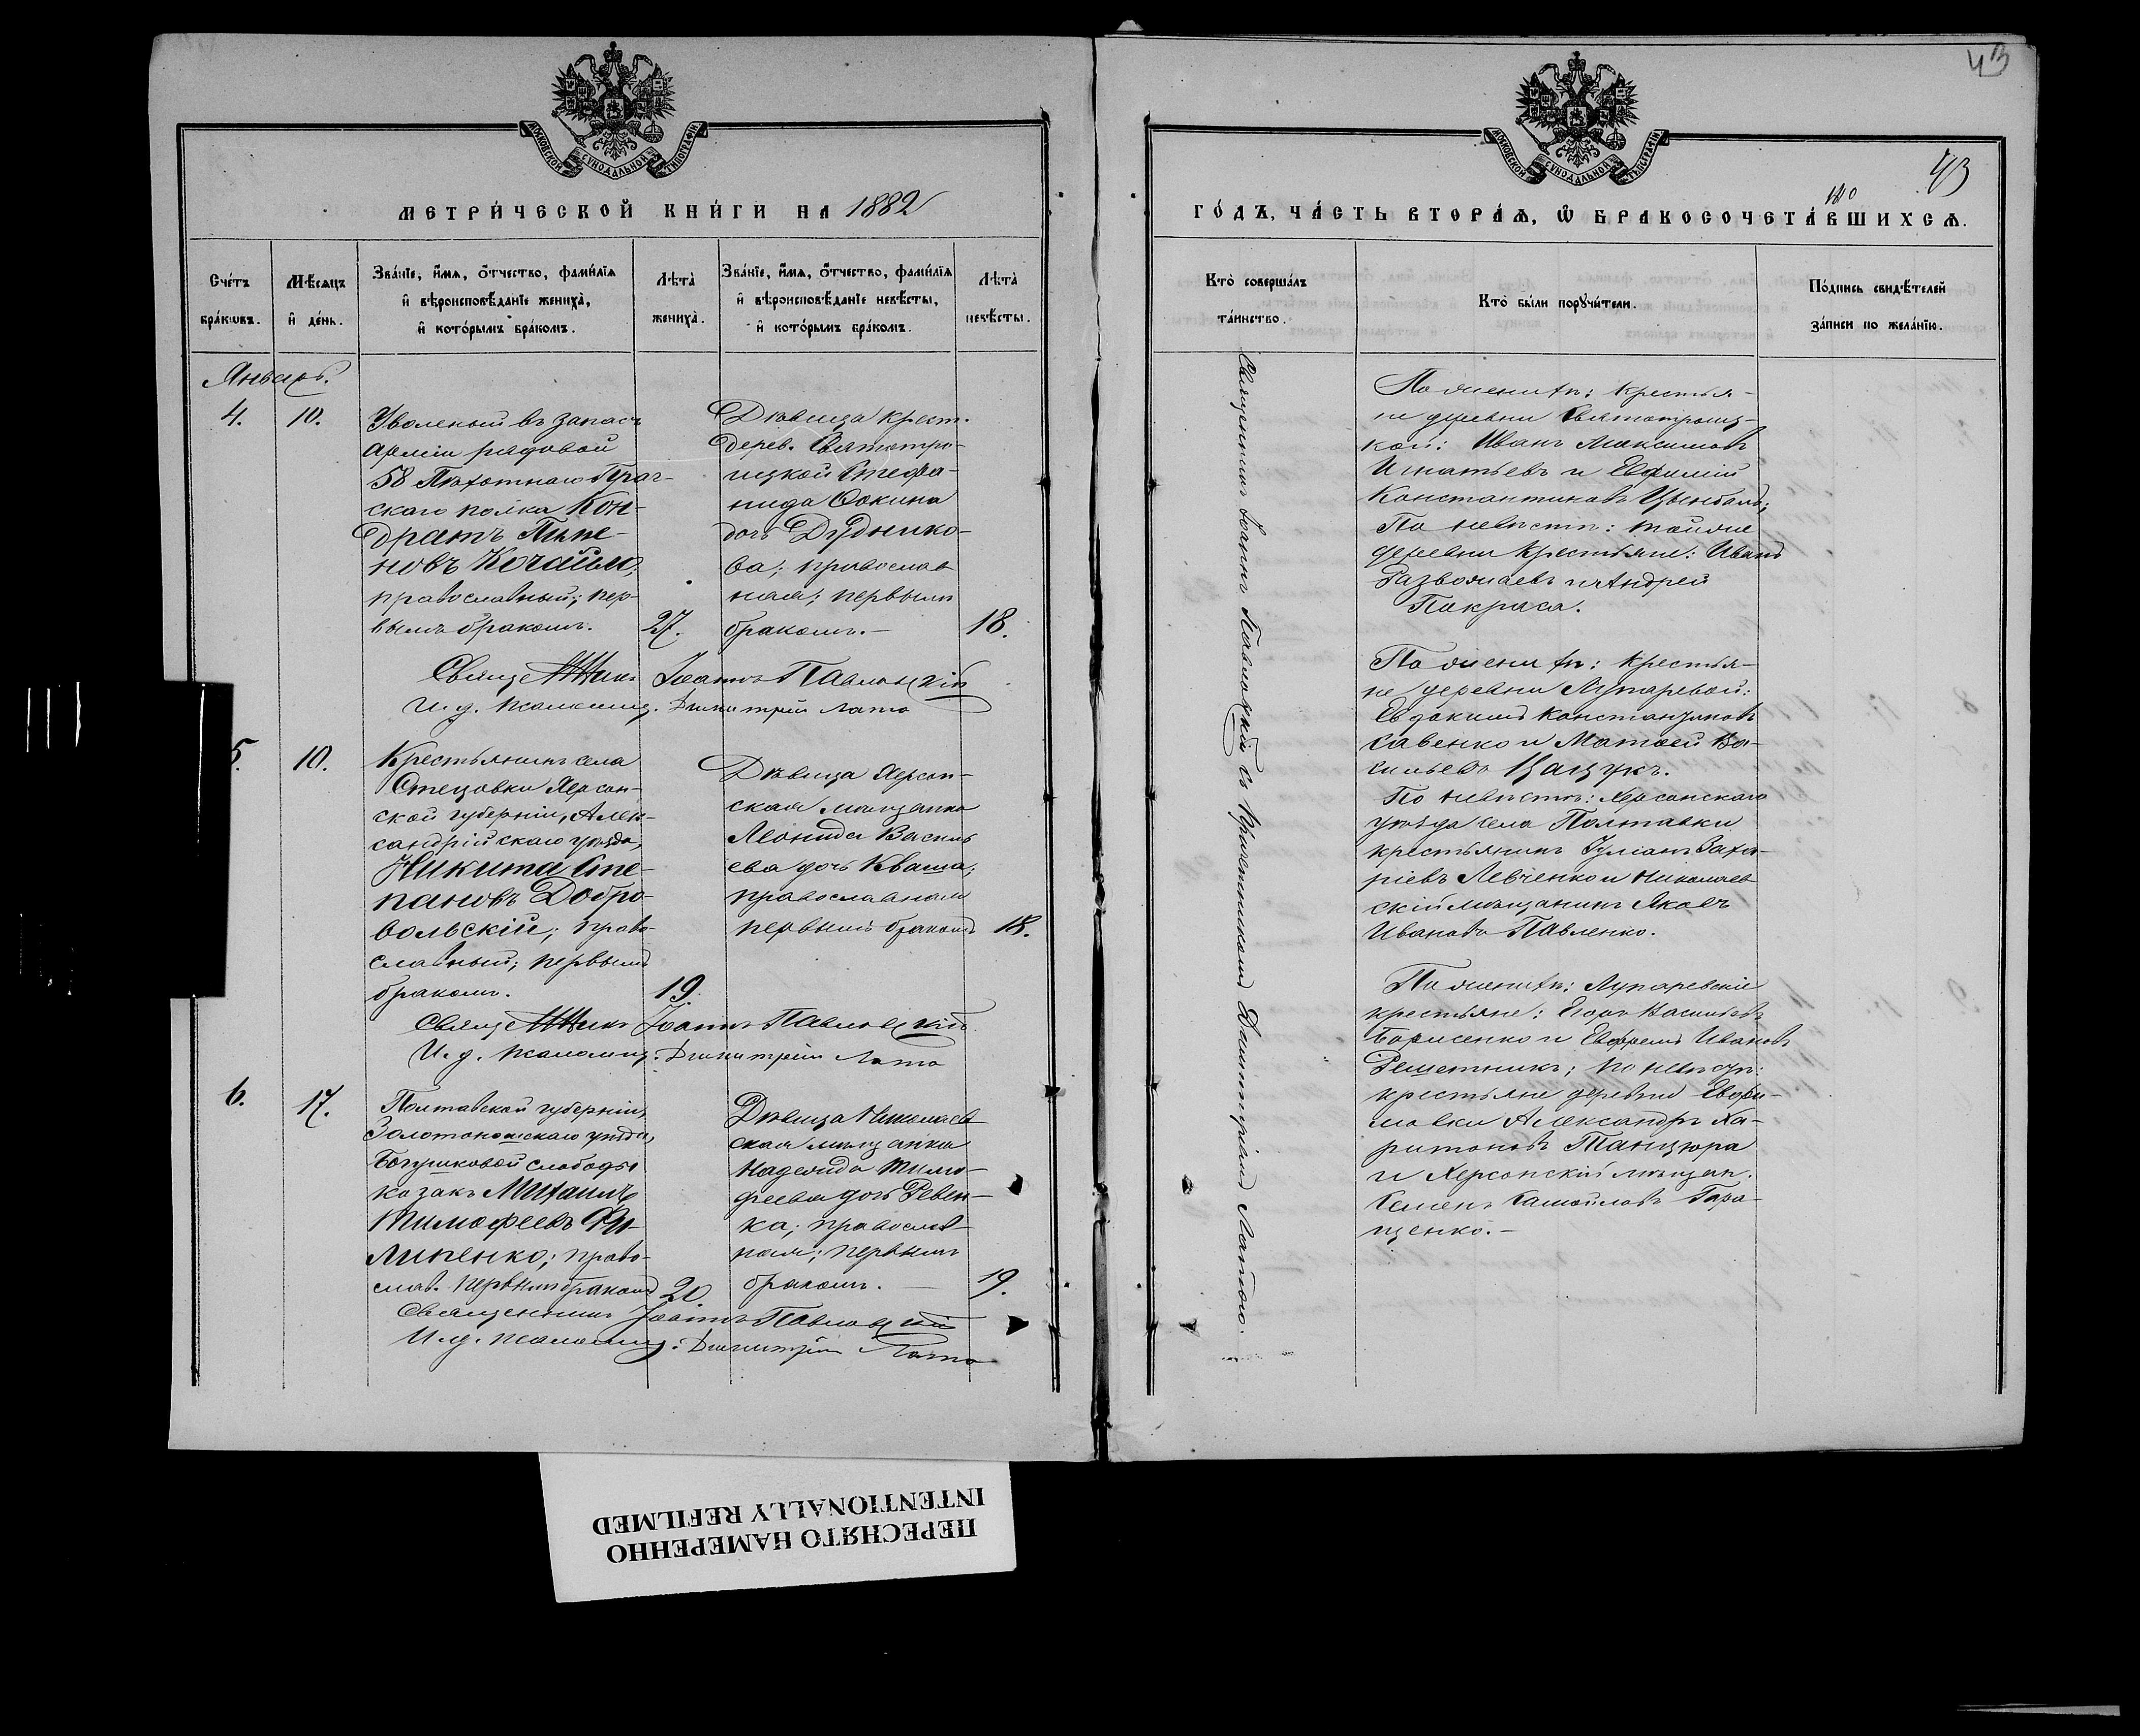 МОСКОВСКОЙ СѴНОДАЛЬНОЙ ТИПОГРАФІИ
МЕТРИ́ЧЕСКОЙ КНИ́ГИ НА 1882
Сче́тъ бра́кωвъ.
Мѣ́сяцъ и҆ де́нь.
Зва́нїе, и҆́мя, ѻ҆́тчество, фами́лїя и҆ вѣроисповѣ́данїе жениха̀, и҆ кото́рымъ бра́комъ.
Лѣта̀ жениха̀.
Зва́нїе, и҆́мя, ѻ҆́тчество, фами́лїя и҆ вѣроисповѣ́данїе невѣ́сты, и҆ кото́рымъ бра́комъ.
Лѣта̀ невѣ́сты.
Январь.
4.
10.
Уволеный въ запасъ
арміи рядовой
58 Пѣхотнаго Праг-
скаго полка Кон-
дратъ
новъ
православный; пер-
вымъ бракомъ.
27.
Дѣвица крест.
дерев. Святотро-
ицкой Стефа-
нида Фокина
дочь Дуднико-
ва; православ
ная; первымъ
бракомъ.—
18.
Священникъ Іоаннъ Павловскій
И. д. псаломщ. Димитрій Лато
5.
10.
Крестьянинъ села
Стецовки Херсон-
ской губерніи, Алек-
сандрійскаго уѣзда,
Никита Сте-
пановъ Добро-
вольскій; право-
славный; первымъ
бракомъ.
19.
Дѣвица Херсон-
ская мѣщанка
Леонида Василь
ева дочь Кваша;
православная
первымъ бракомъ
18.
Священникъ Іоаннъ Павловскій
И. д. псаломщ. Димитрій Лато
6.
17.
Полтавской губерніи,
Золотоношскаго уѣзда,
Богушковой слободы
козакъ Михаилъ
Тимофеевъ Фи-
липенко; право-
слав. первымъ бракомъ
20
Дѣвица Николаев
ская мѣщанка
Надежда Тимо-
феева дочь Ревен-
ка; православ-
ная; первымъ
бракомъ. —
19.
Священникъ Іоаннъ Павловскій
И. д. псаломщ. Димитрій Лато
43
МОСКОВСКОЙ СѴНОДАЛЬНОЙ ТИПОГРАФІИ
43
ГО́ДЪ, ЧА́СТЬ ВТОРА́Ѧ, Ѽ БРАКОСОЧЕТА́ВШИХСѦ.
Кто̀ соверша́лъ та́инство.
Кто̀ бы́ли порꙋчи́тели.
По́дпись свидѣ́телей за́писи по жела́нїю.
Священникъ Іоаннъ Павловскій съ Причетникомъ Димитріемъ Латою.
По женихѣ: крестья-
не деревни Святотроиц-
кой: Иванъ Максимовъ
Игнатьевъ и Евфимій
Константиновъ Цымбалъ;
По невѣстѣ: той же
деревни крестьяне: Иванъ
Развожаевъ и Андрей
Покраса.
По женихѣ: крестья-
не деревни Лупаревой:
Евдокимъ Константиновъ
Савенко и Матвей Ва-
сильевъ Кацукъ.
По невѣстѣ: Херсонскаго
уѣзда села Полтавки
крестьянинъ Іуліанъ Заха-
ріевъ Левченко и Николаев
скій мѣщанинъ Яковъ
Ивановъ Павленко.
По женихѣ: Лупаревскіе
крестьяне: Егоръ Васильевъ
Борисенко и Евфремъ Ивановъ
Решетникъ; по невѣстѣ:
крестьяне деревни Евфи-
мовки Александръ Ха-
ритоновъ Танцюра
и Херсонскій мѣщан.
Семенъ Самойловъ Гара-
щенко.—
ПЕРЕСНЯТО НАМЕРЕННО
INTENTIONALLY REFILMED